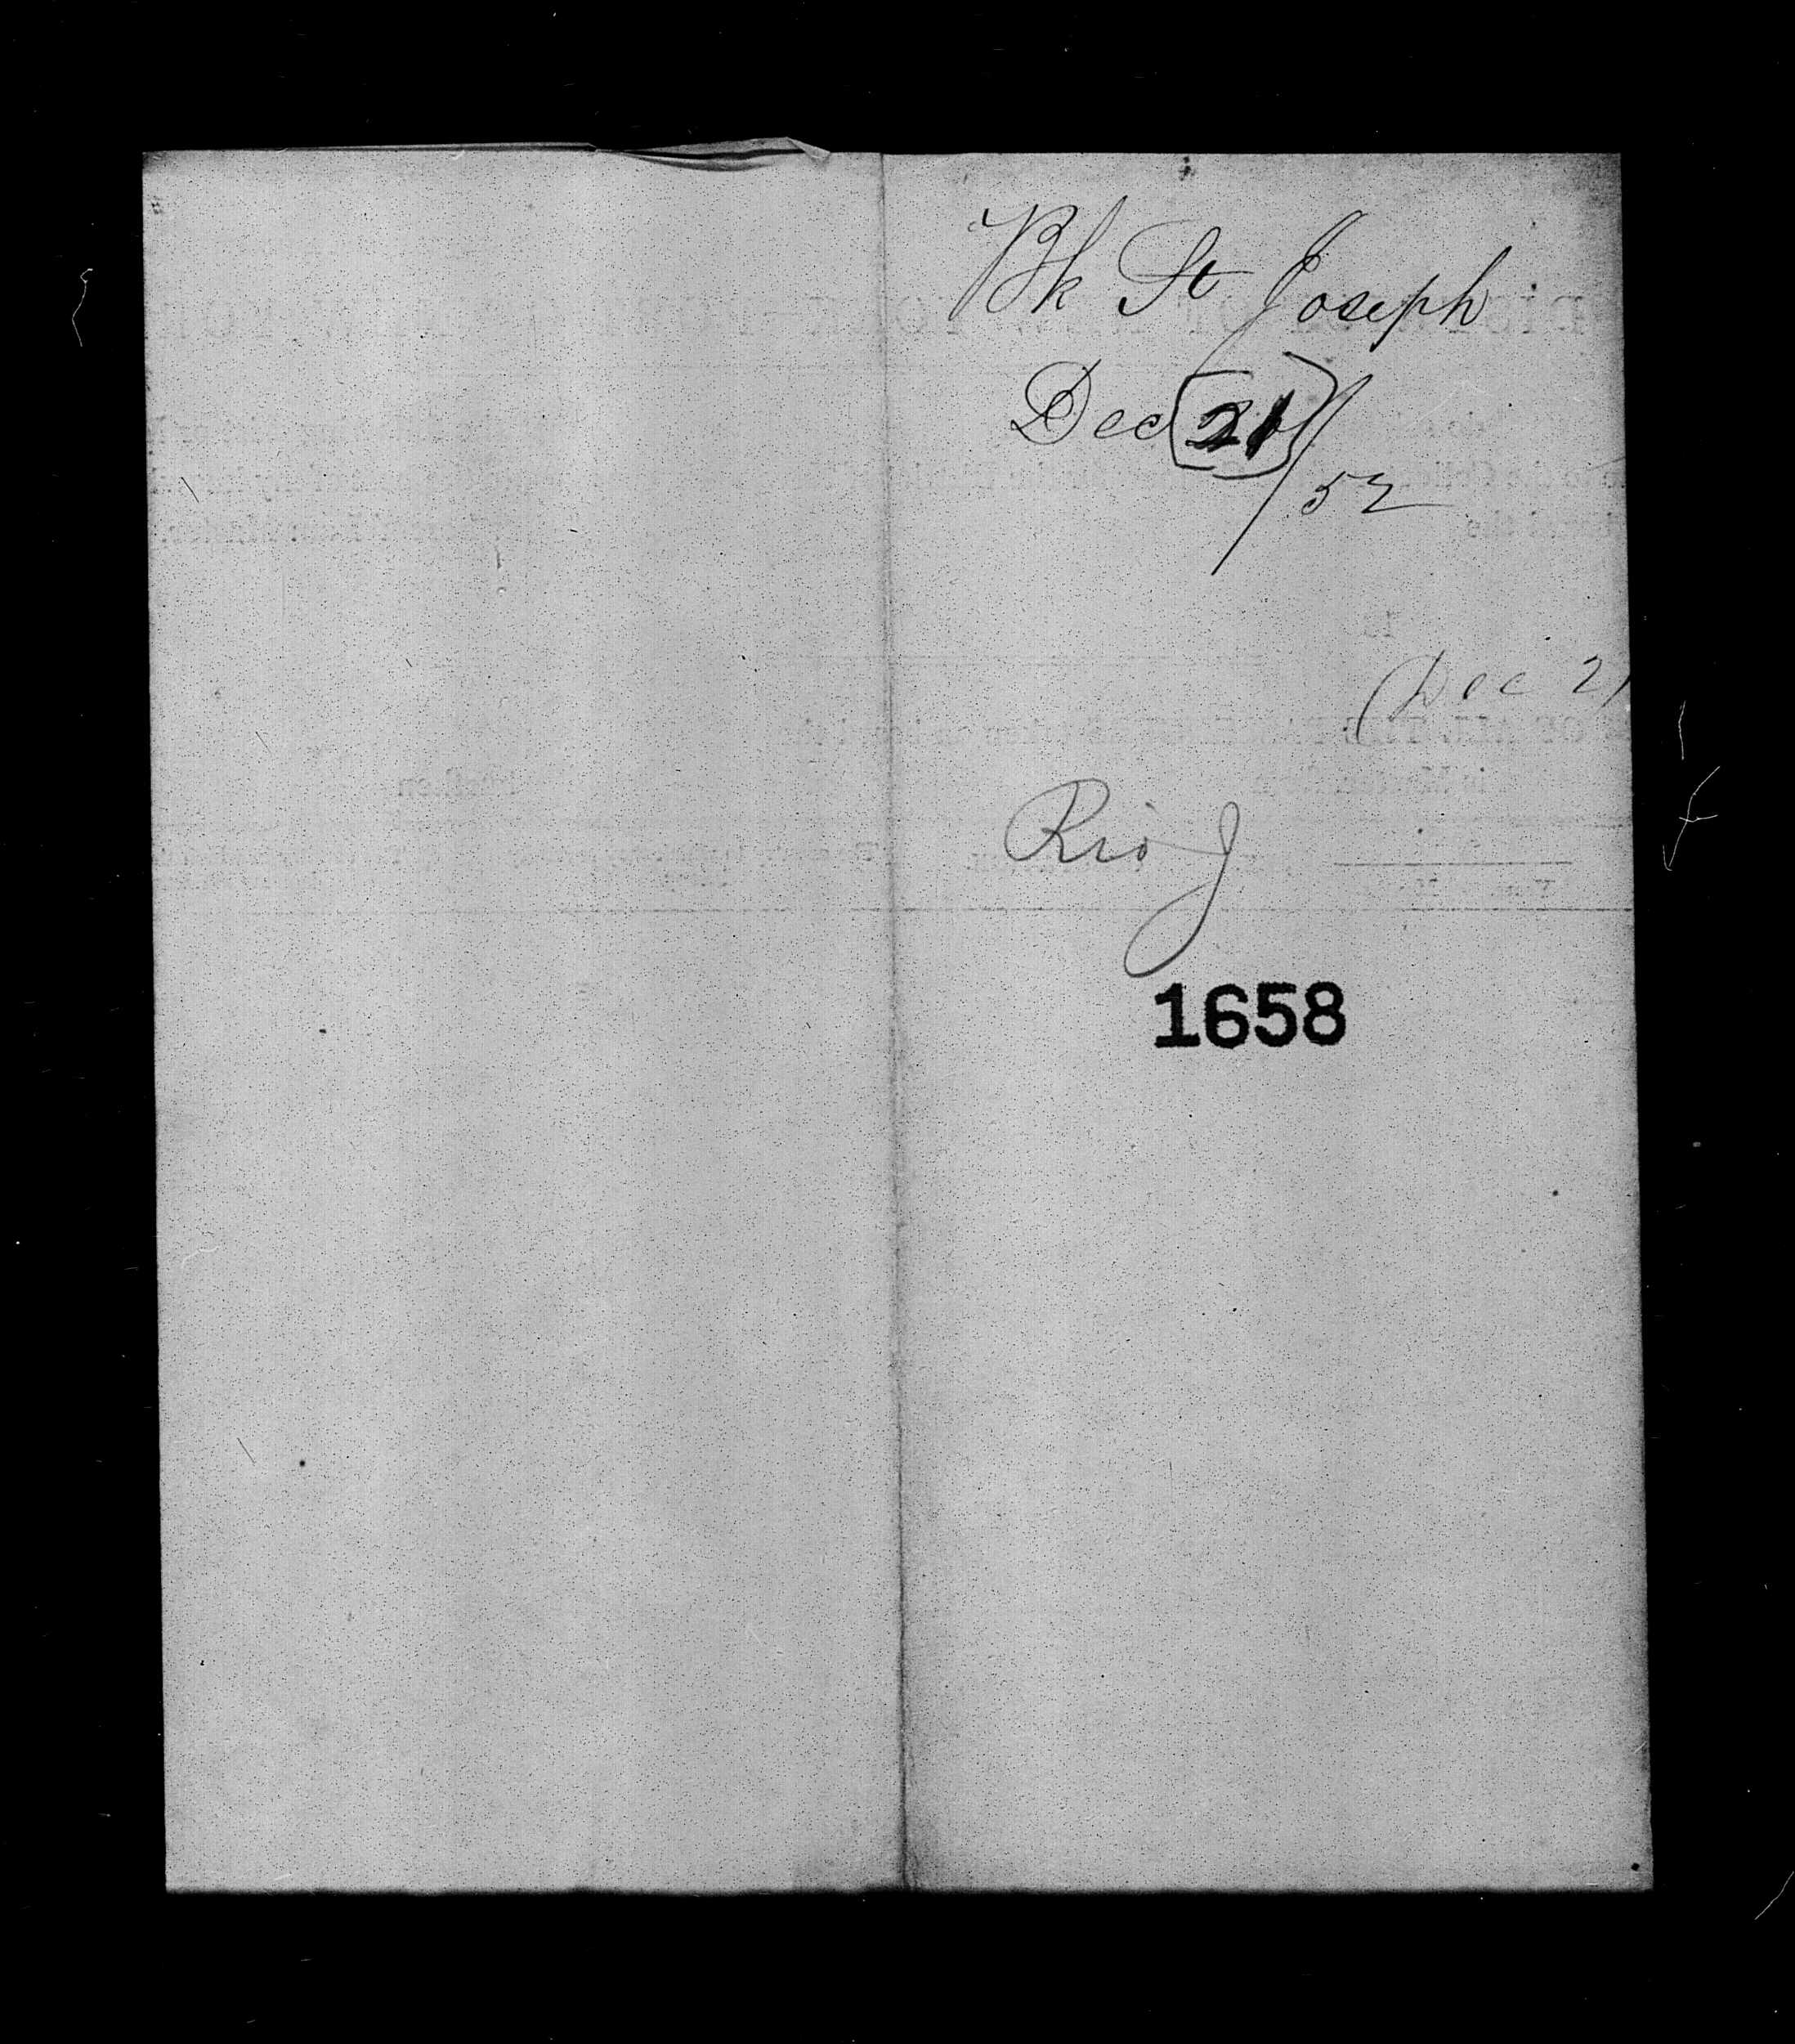 Bk St Joseph
Dec 21/52
(Dec 21
Rio J
1658